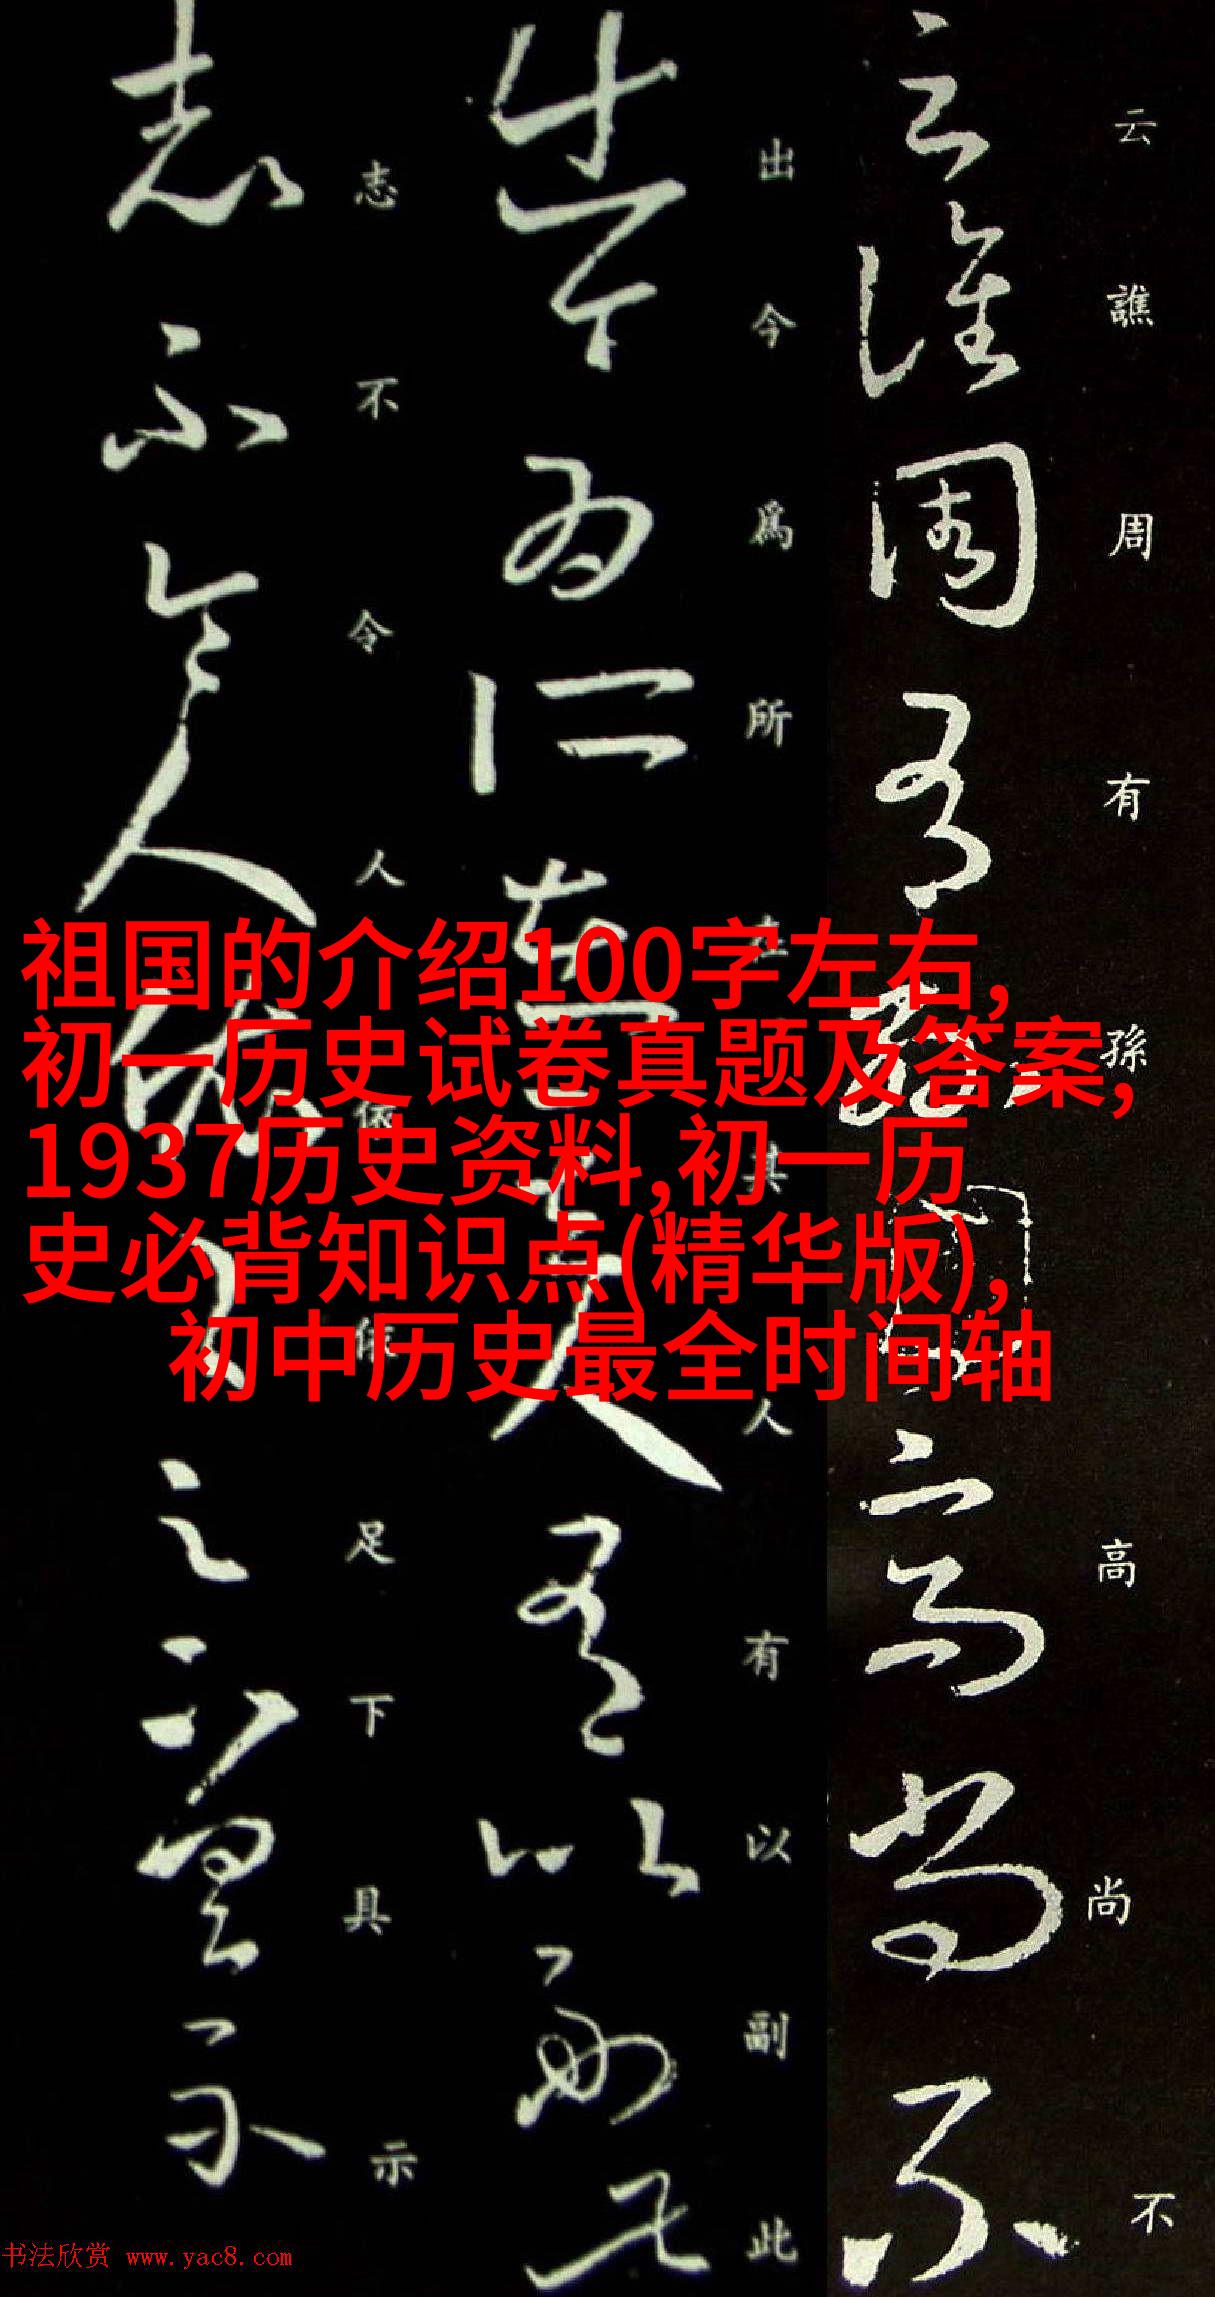 云譙周有孫高尚不
出今為所在其人有以副此
志不令人依依足下具示
祖国的介绍100字左右,
初一历史试卷真题及答案,
1937历史资料,初一历
史必背知识点(精华版),
初中历史最全时间轴
书法欣赏 www.yac8.com